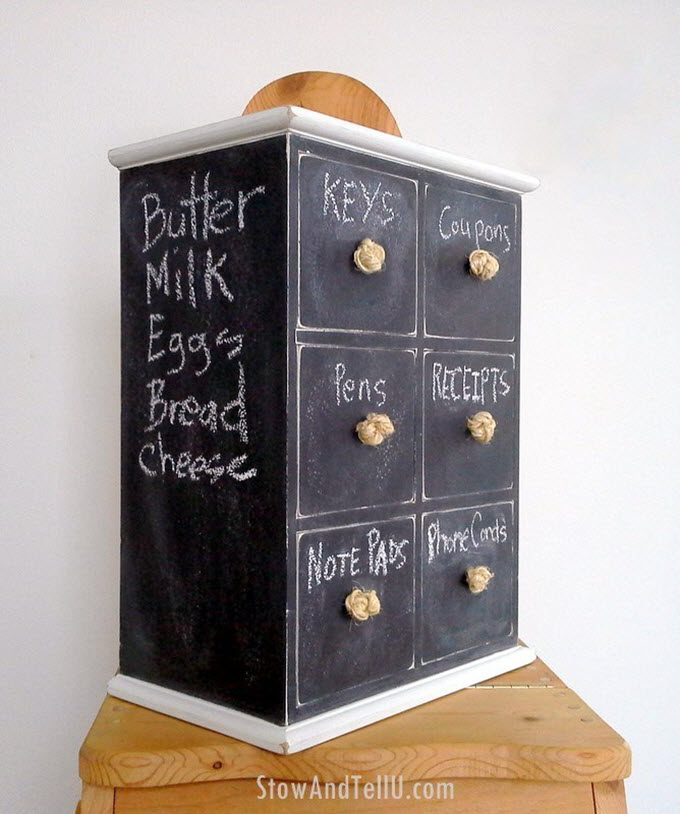 Butter
Milk
Eggs
Bread
Cheese
KEYS
Coupons
Pens
RECEIPTS
NOTE PADS
Phone Cords
StowAndTellU.com